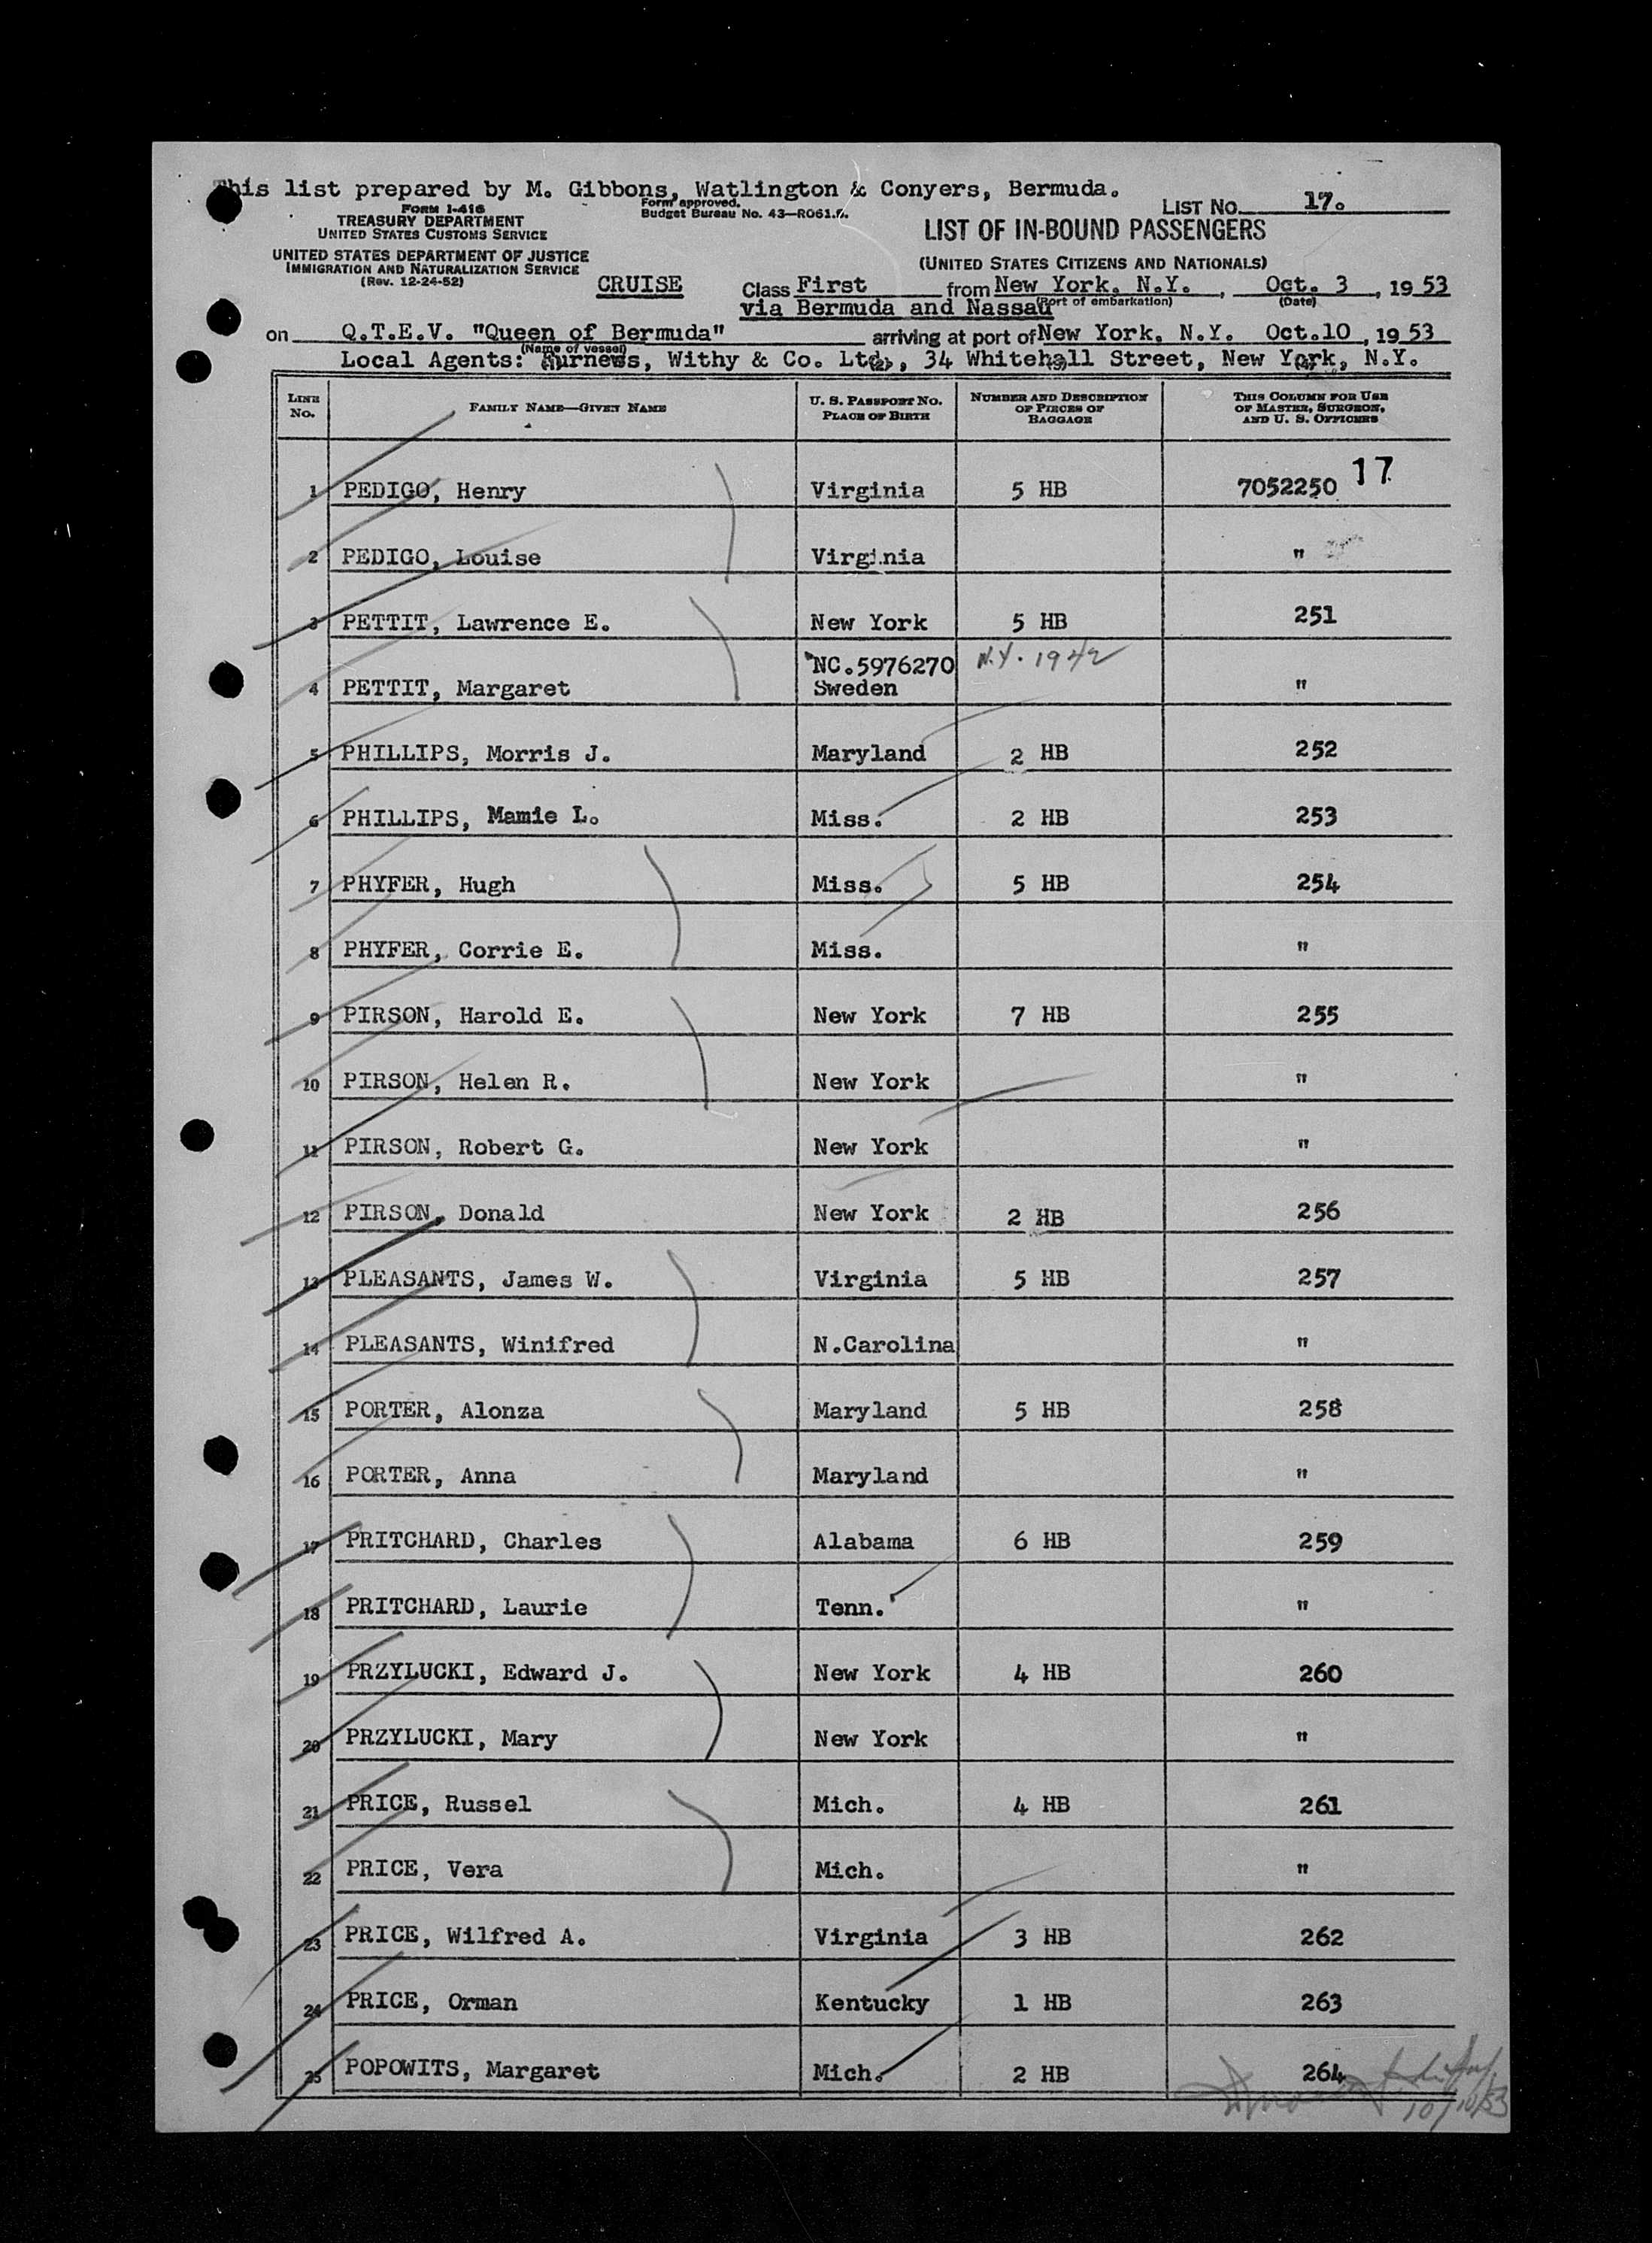 This list prepared by M. Gibbons, Watlington & Conyers, Bermuda.
FORM I-416
TREASURY DEPARTMENT
UNITED STATES CUSTOMS SERVICE
UNITED STATES DEPARTMENT OF JUSTICE
IMMIGRATION AND NATURALIZATION SERVICE
(Rev. 12-24-52)
Form approved.
Budget Bureau No. 43—RO61.
LIST No. 17.
LIST OF IN-BOUND PASSENGERS
(UNITED STATES CITIZENS AND NATIONALS)
CRUISE Class First from New York, N.Y., Oct. 3, 1953
via Bermuda and Nassau (Port of embarkation) (Date)
on Q.T.E.V. "Queen of Bermuda" arriving at port of New York, N.Y. Oct.10, 1953
(Name of vessel)
Local Agents: Furness, Withy & Co. Ltd., 34 Whitehall Street, New York, N.Y.
(1) (2) (3) (4)
LINE No. FAMILY NAME—GIVEN NAME U. S. PASSPORT NO. PLACE OF BIRTH NUMBER AND DESCRIPTION OF PIECES OF BAGGAGE THIS COLUMN FOR USE OF MASTER, SURGEON, AND U. S. OFFICERS
17
1 PEDIGO, Henry Virginia 5 HB 7052250
2 PEDIGO, Louise Virginia "
3 PETTIT, Lawrence E. New York 5 HB 251
NC.5976270 N.Y. 1942
4 PETTIT, Margaret Sweden "
5 PHILLIPS, Morris J. Maryland 2 HB 252
6 PHILLIPS, Mamie L. Miss. 2 HB 253
7 PHYFER, Hugh Miss. 5 HB 254
8 PHYFER, Corrie E. Miss. "
9 PIRSON, Harold E. New York 7 HB 255
10 PIRSON, Helen R. New York "
11 PIRSON, Robert G. New York "
12 PIRSON, Donald New York 2 HB 256
13 PLEASANTS, James W. Virginia 5 HB 257
14 PLEASANTS, Winifred N.Carolina "
15 PORTER, Alonza Maryland 5 HB 258
16 PORTER, Anna Maryland "
17 PRITCHARD, Charles Alabama 6 HB 259
18 PRITCHARD, Laurie Tenn. "
19 PRZYLUCKI, Edward J. New York 4 HB 260
20 PRZYLUCKI, Mary New York "
21 PRICE, Russel Mich. 4 HB 261
22 PRICE, Vera Mich. "
23 PRICE, Wilfred A. Virginia 3 HB 262
24 PRICE, Orman Kentucky 1 HB 263
25 POPOWITS, Margaret Mich. 2 HB 264
10/10/53